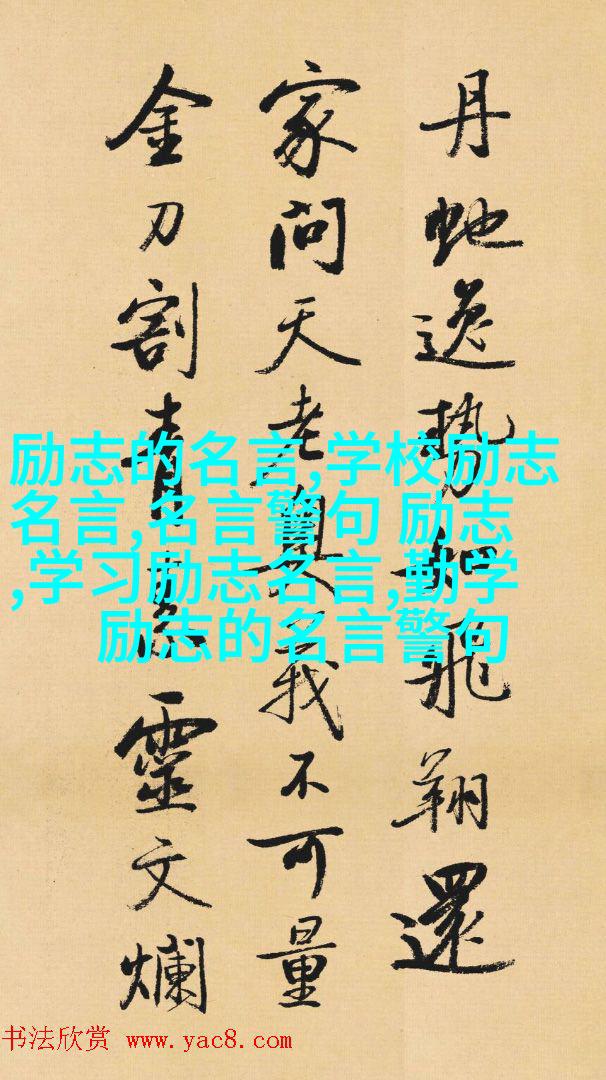 丹虵逸勢如飛翔還
家問天老奥義不可量
金刀割青素靈文爛
励志的名言,学校励志
名言,名言警句 励志
,学习励志名言,勤学
励志的名言警句
书法欣赏 www.yac8.com